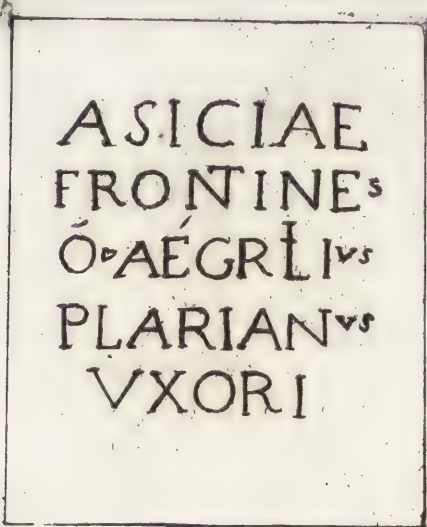 ASICIAE
FRONTINES
Ó·AÉGRILIVS
PLARIANVS
VXORI